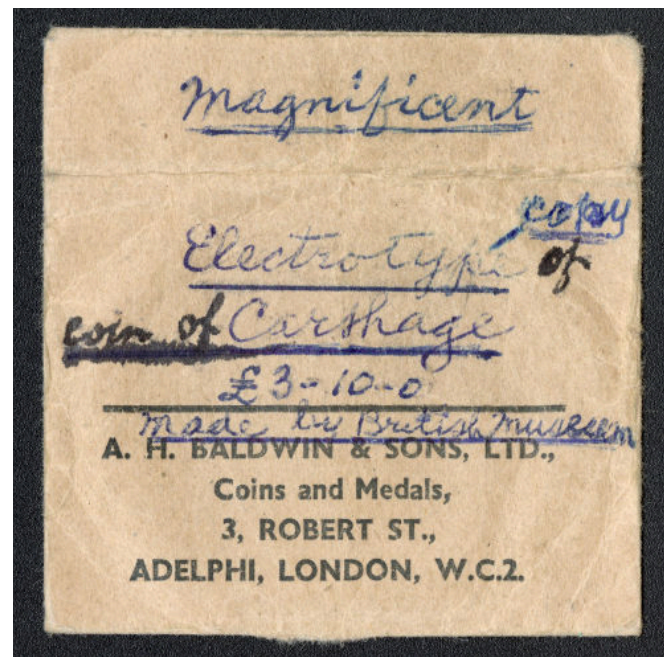 Magnificent
copy
Electrotype of
coin of Carthage
£3-10-0
made by British Museum
A. H. BALDWIN & SONS, LTD.,
Coins and Medals,
3, ROBERT ST.,
ADELPHI, LONDON, W.C.2.